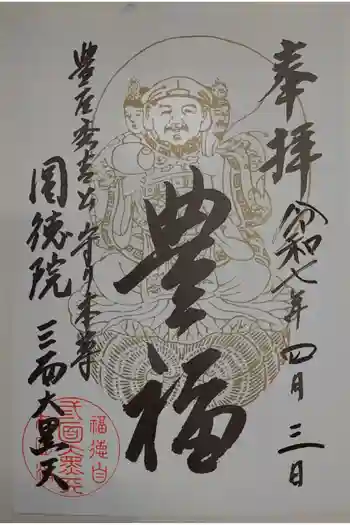 奉拝
令和七年四月三日
豊福
豊臣秀吉公 守り本尊
圓徳院 三面大黒天
福徳自在
三面大黒天